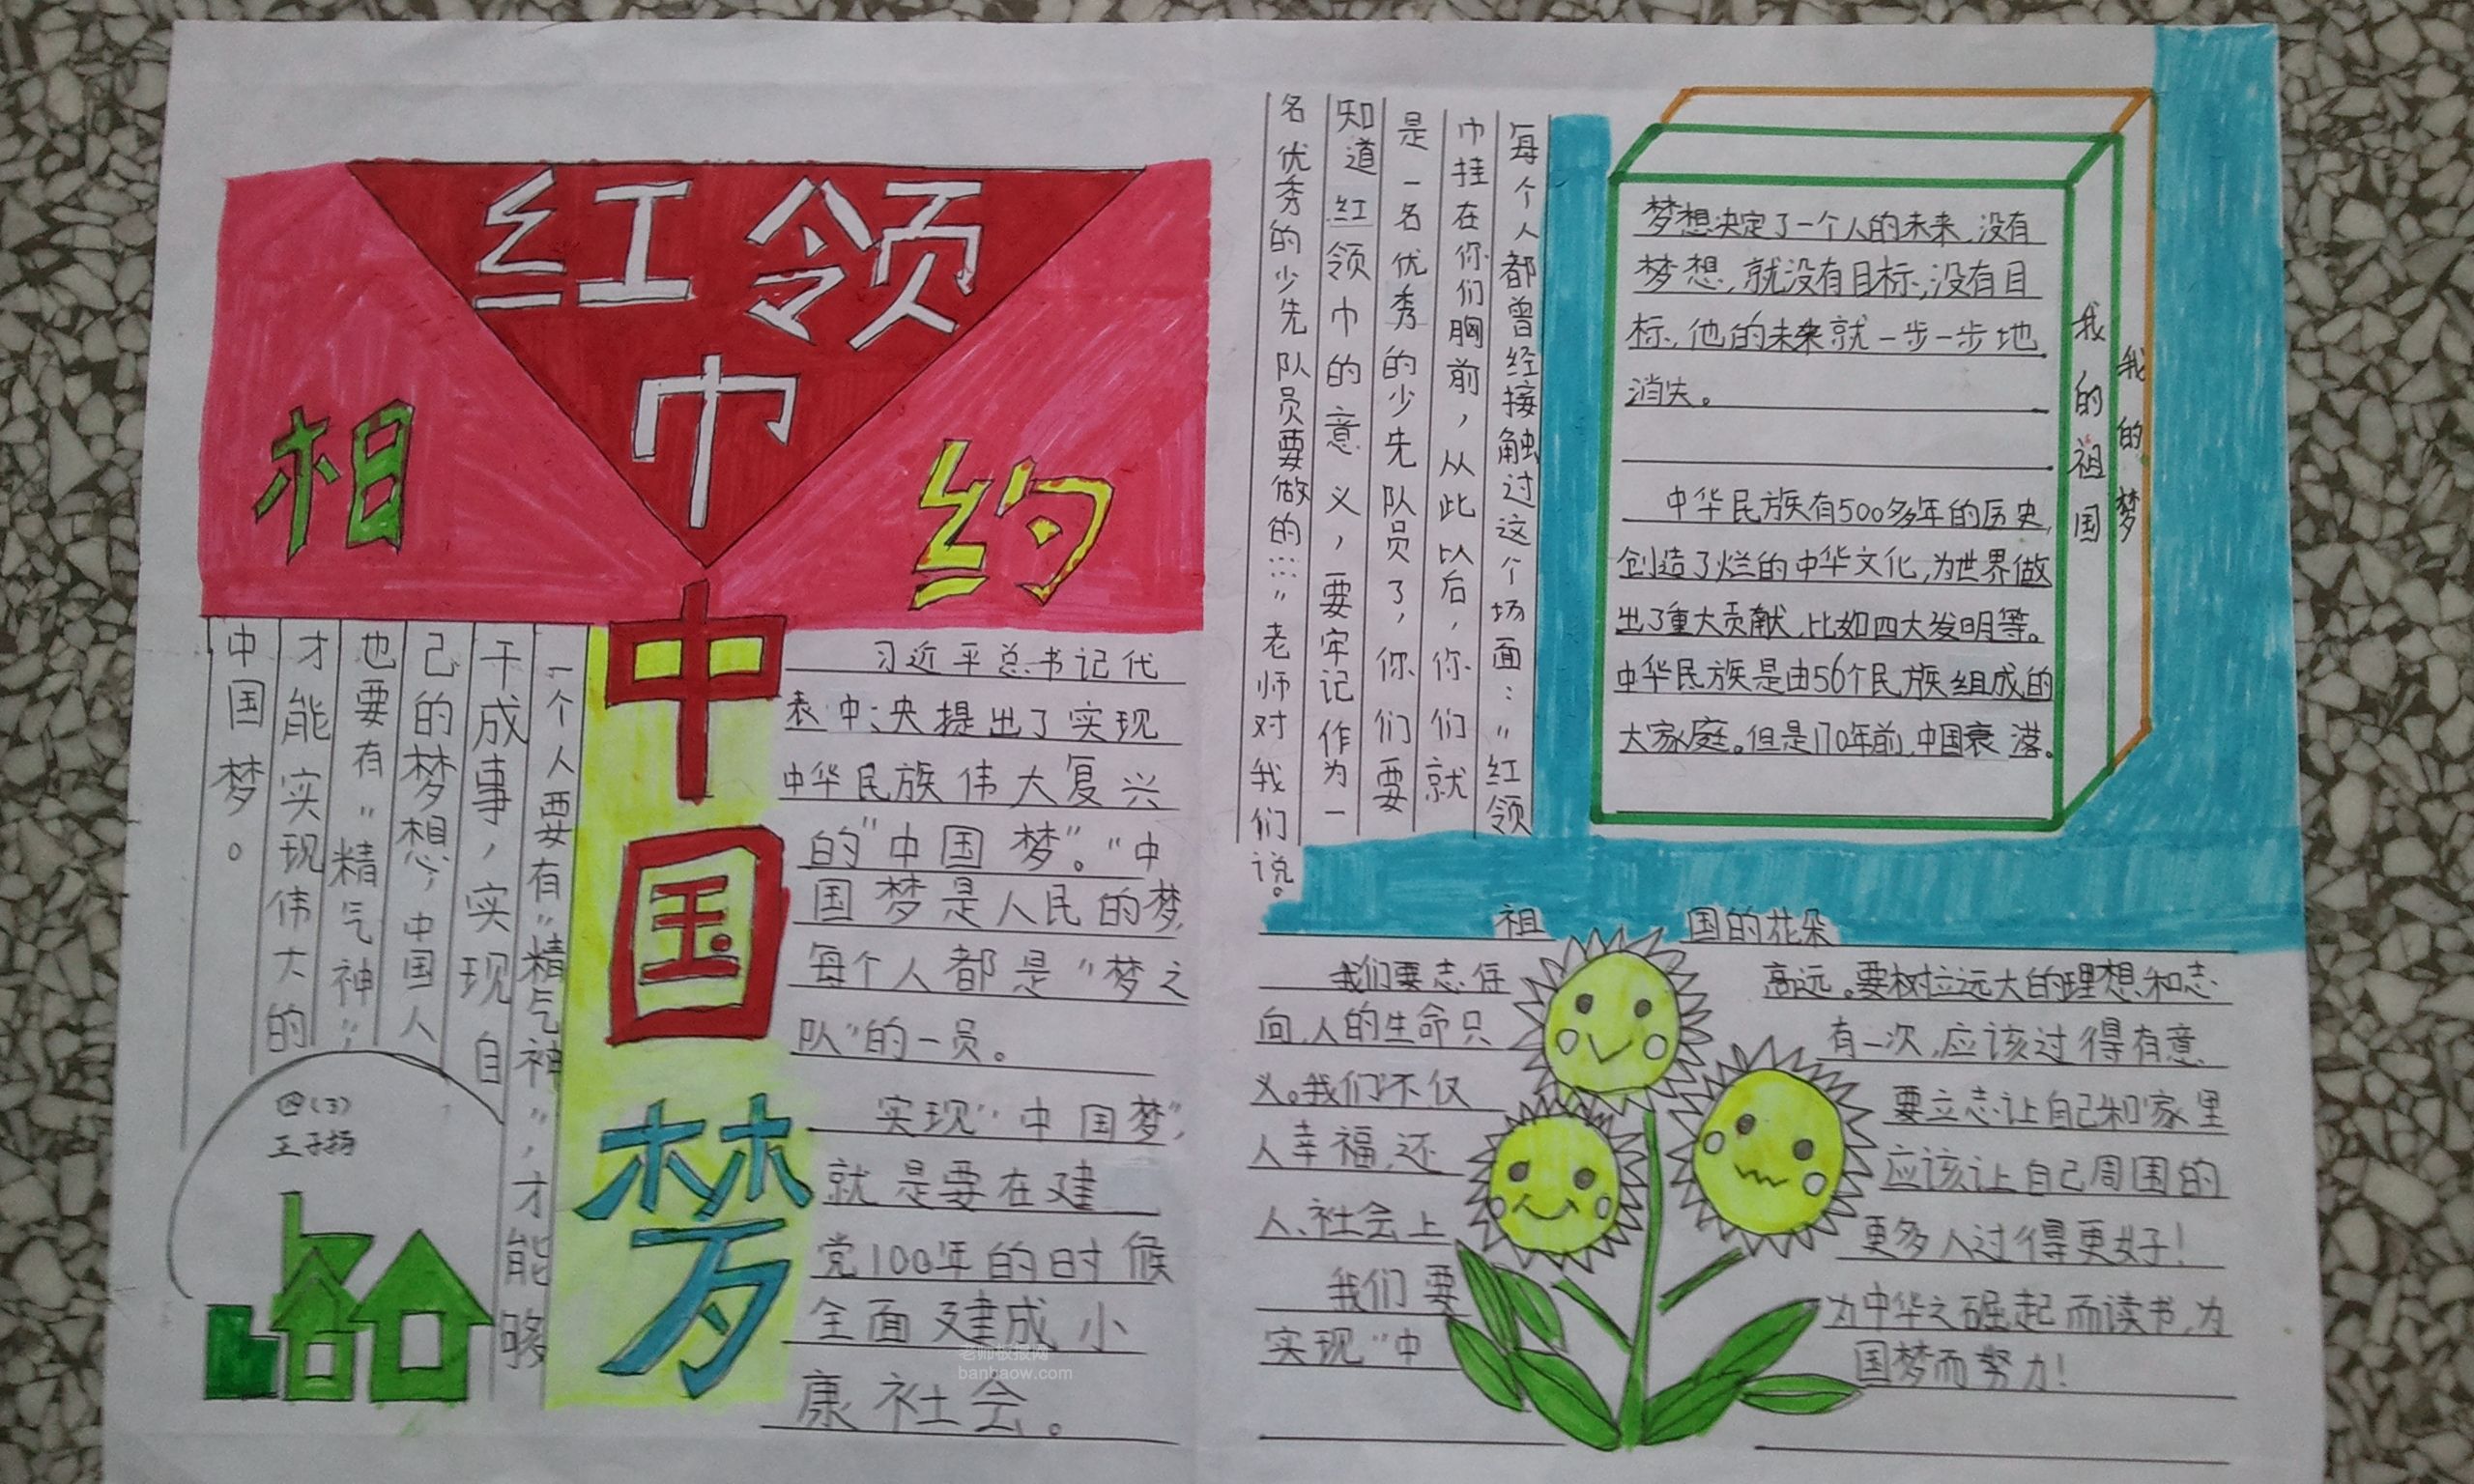 红领
巾
相
约
中
国
梦
一个人要有“精气神”,才能够
干成事,实现自
己的梦想,中国人
也要有“精气神”
才能实现伟大的
中国梦。
四(3)
习近平总书记代
表中央提出了实现
中华民族伟大复兴
的“中国梦”。“中
国梦是人民的梦,
每个人都是“梦之
队”的一员。
实现“中国�”,
就是要在建
党100年的时候
全面建成小
康社会。
每个人都曾经接触过这个场面:“红领
巾挂在你们胸前,从此以后,你们就
是一名优秀的少先队员了,你们要
知道红领巾的意义,要牢记作为一
名优秀的少先队员要做的……”老师对我们说。
梦想决定了一个人的未来,没有
梦想,就没有目标,没有目
标,他的未来就一步一步地
消失。
中华民族有500多年的历史,
创造了烂的中华文化,为世界做
出了重大贡献,比如四大发明等。
中华民族是由56个民族组成的
大家庭。但是170年前,中国衰落。
我的祖国
我的梦
祖 国的花朵
我们要志存 高远。要树立远大的理想和志
向,人的生命只 有一次,应该过得有意
义。我们不仅 要立志让自己和家里
人幸福,还 应该让自己周围的
人、社会上 更多人过得更好!
我们要 为中华之崛起而读书,为
实现“中 国梦而努力!
老师板报网
banbaow.com